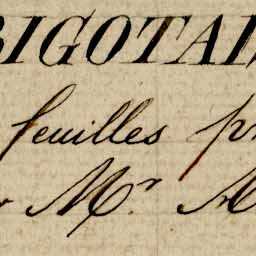 BIGOTAL
feuilles pr
r Mr. M